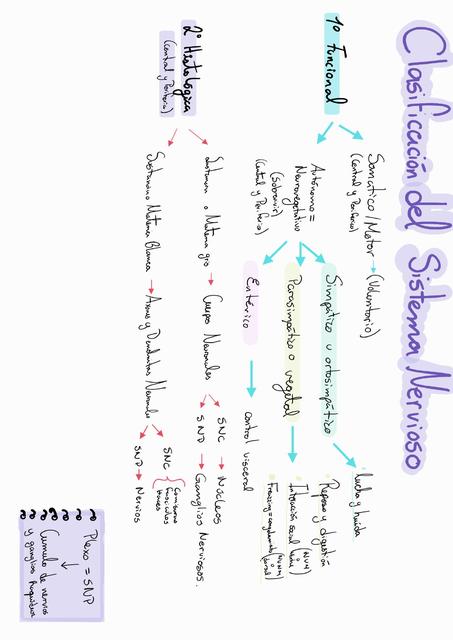 Clasificación del Sistema Nervioso
1º Funcional
Somático/Motor → (Voluntario)
(Central y Periférico)
Autónomo =
Neurovegetativo
(Central y Periférico)
Simpático u ortosimpático
• lucha y huida
Parasimpático o vegetal
• Reposo y digestión
• Interacción social
• Freezing =
Entérico
control visceral
2º Histológica
(Central y Periférico)
Sustancia o Materia gris
Cuerpos Neuronales
SNC → Núcleos
SNP → Ganglios Nerviosos.
Materia Blanca
Axones y Dendritas Neuronales
SNC
Fascículos
SNP → Nervios
Plexo = SNP
↓
Cúmulo de nervios
y ganglios